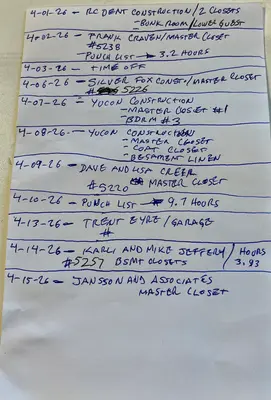 4-01-26 - RC DENT CONSTRUCTION / 2 CLOSETS
- BUNK ROOM / LOWER GUEST
4-02-26 - FRANK CRAVEN/MASTER CLOSET
#5238
PUNCH LIST → 3.2 HOURS
4-03-26 - TIME OFF
4-06-26 - SILVER FOX CONST/MASTER CLOSET
# 5226
4-07-26 - YUCON CONSTRUCTION
- MASTER CLOSET #1
- BDRM #3
4-08-26 - YUCON CONSTRUCTION
- MASTER CLOSET
- COAT CLOSET
- BESAMENT LINEN
4-09-26 - DAVE AND LISA CREER
#5220 MASTER CLOSET
4-10-26 - PUNCH LIST → 9.7 HOURS
4-13-26 - TRENT EYRE/GARAGE
#
4-14-26 - KARLI AND MIKE JEFFERY / HOURS
#5257 BSMT CLOSETS 3.93
4-15-26 - JANSSON AND ASSOCIATES
MASTER CLOSET